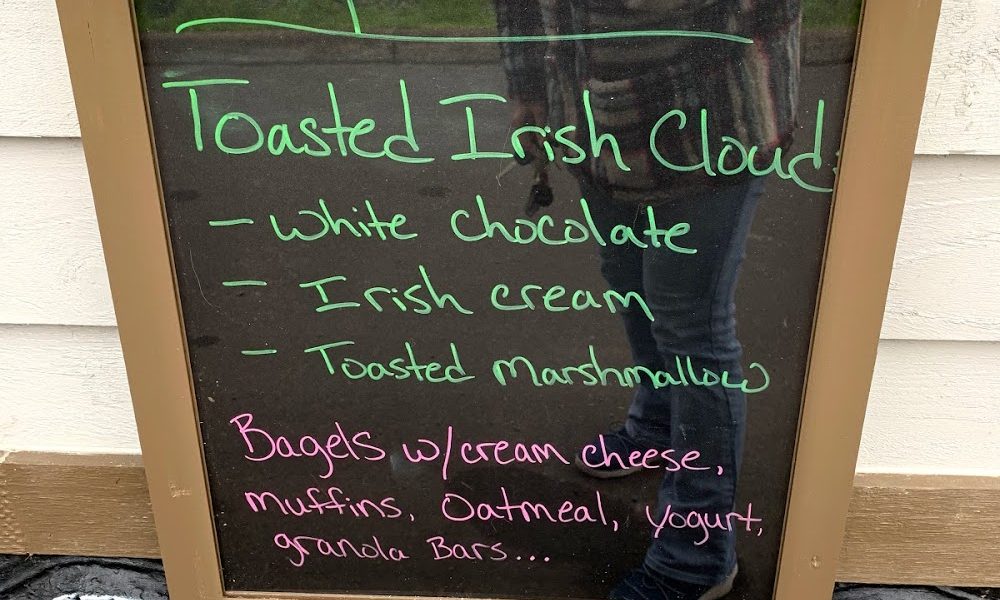 Toasted Irish Cloud:
- White chocolate
- Irish cream
- Toasted Marshmallow
Bagels w/cream cheese,
muffins, Oatmeal, yogurt,
granola Bars...